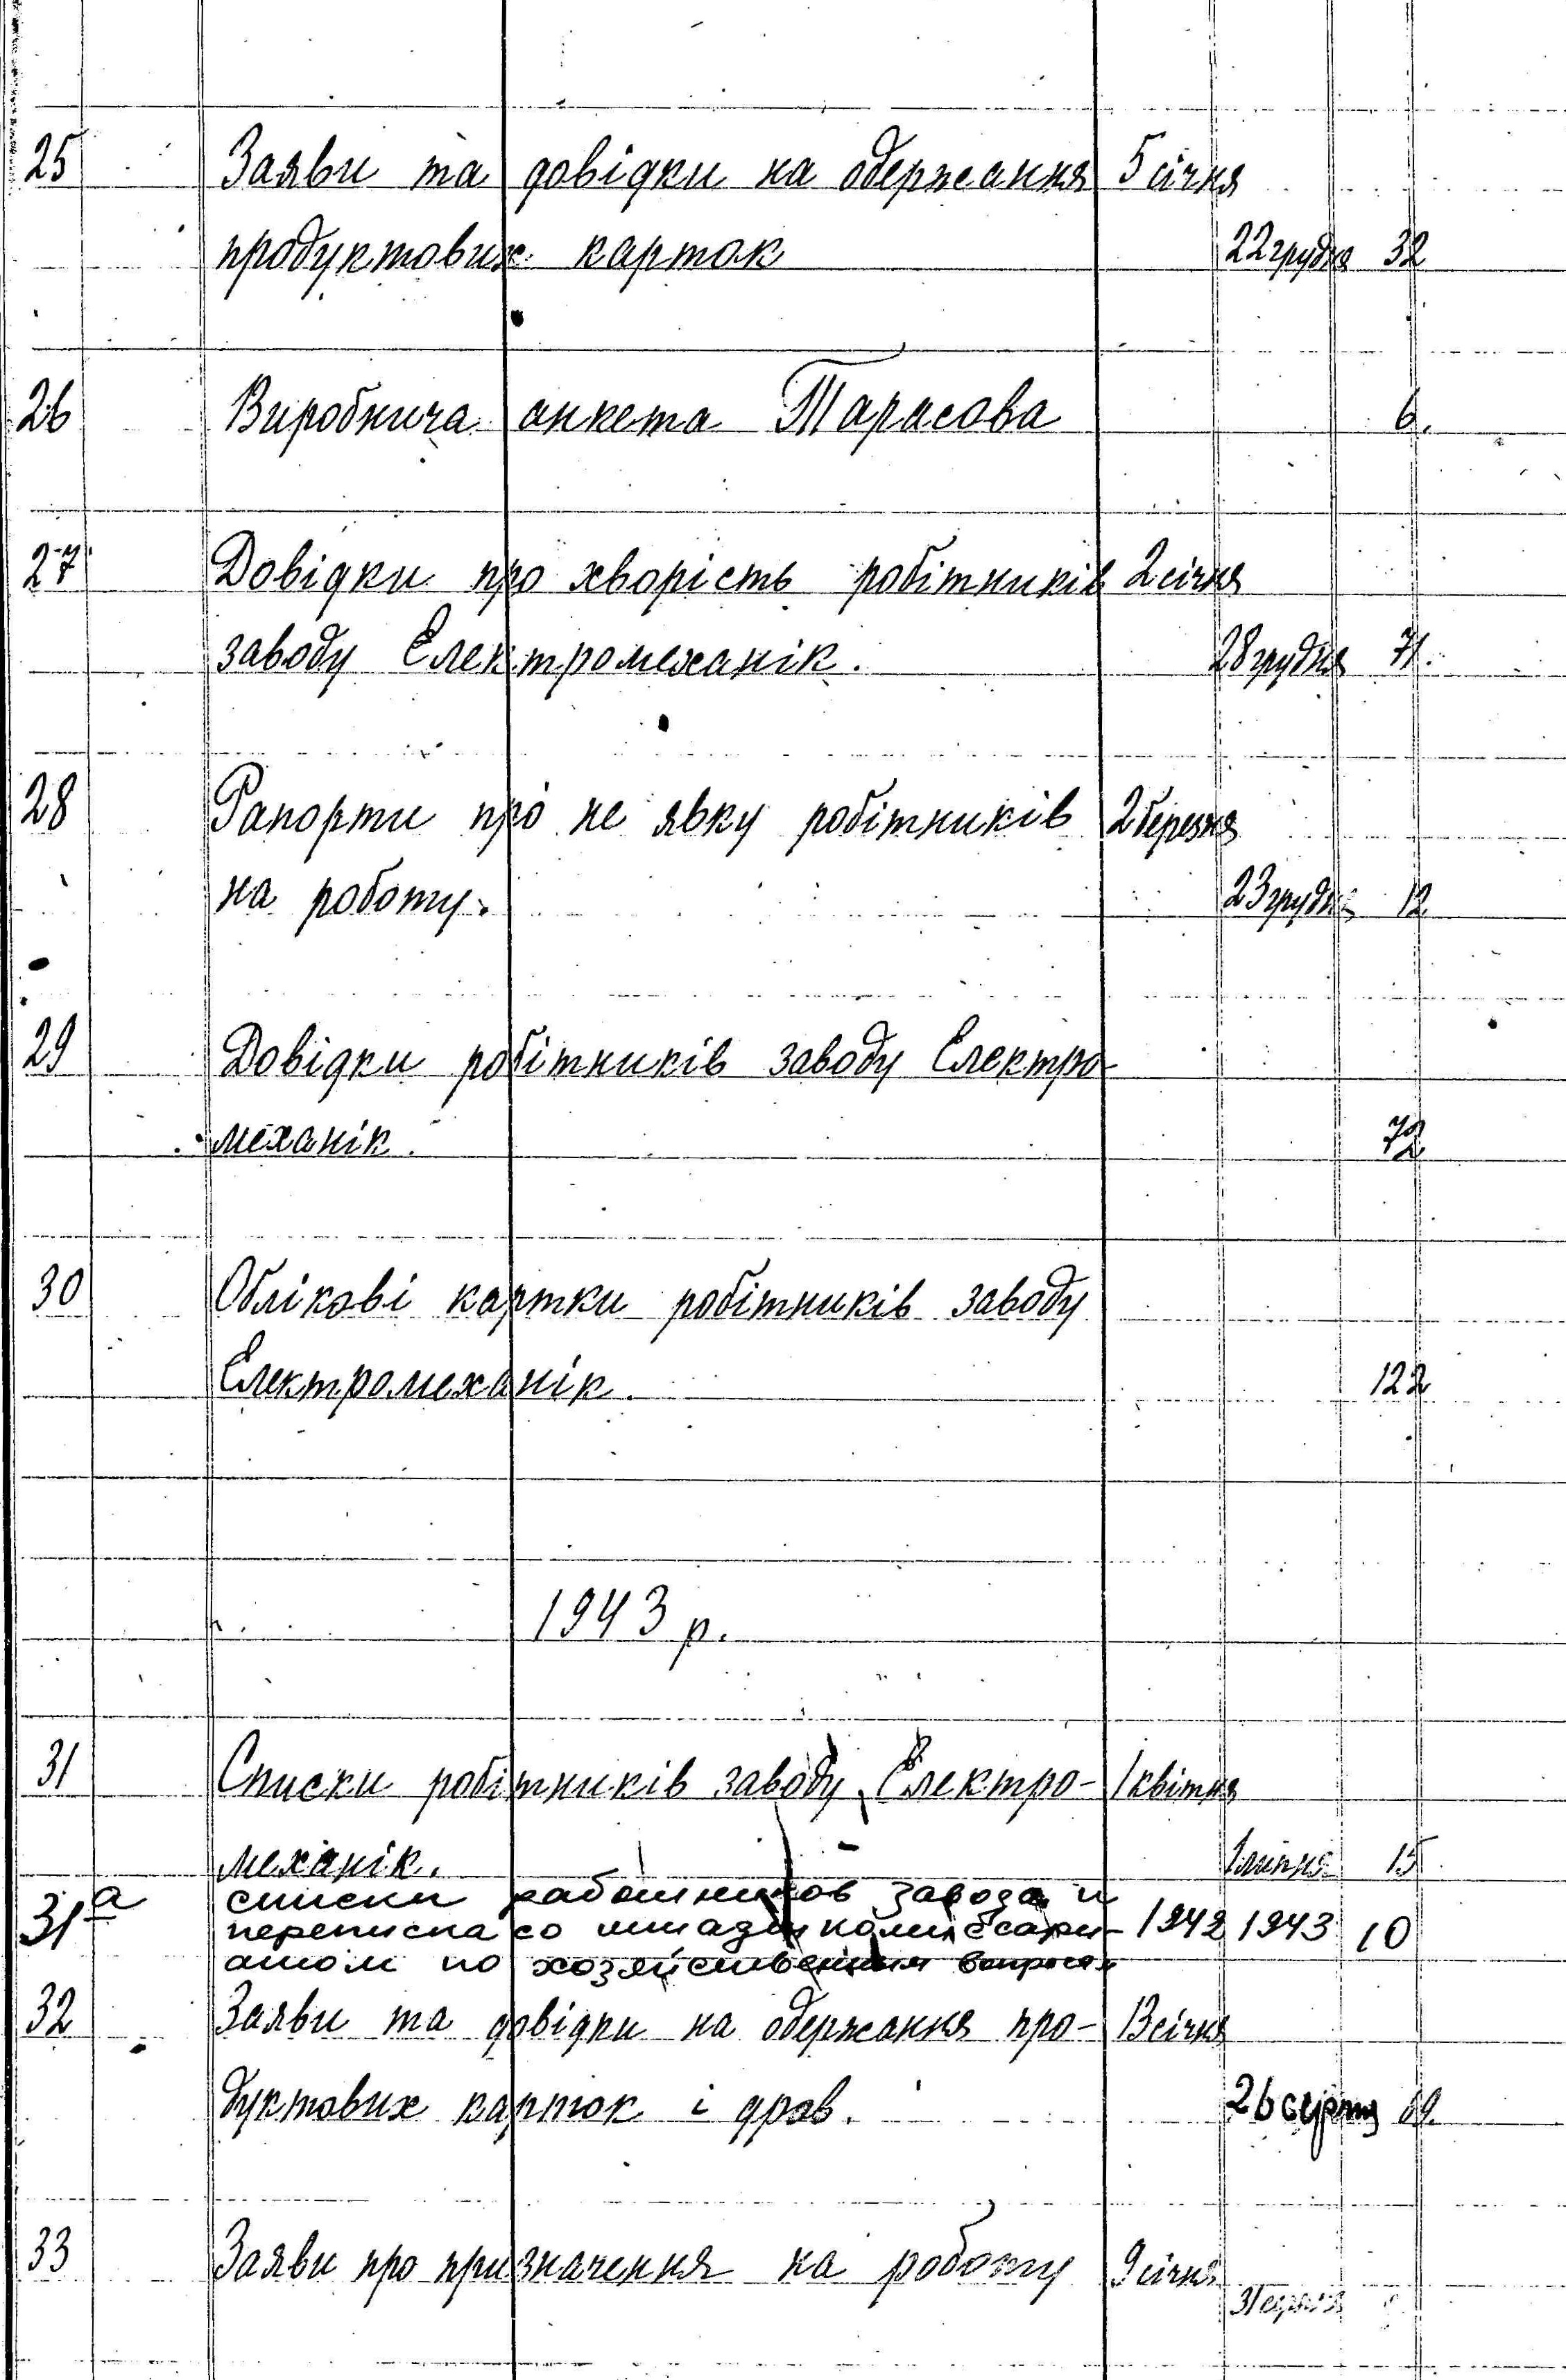 25 Заяви та довідки на одержання 5 січня
продуктових карток 22 грудня 32
26 Виробнича анкета Тарасова 6.
27 Довідки про хворість робітників 2 січня
заводу Електромеханік. 28 грудня 71.
28 Рапорти про не явку робітників 2 березня
на роботу. 23 грудня 12
29 Довідки робітників заводу Електро-
механік. 72
30 Облікові картки робітників заводу
Електромеханік. 122
1943 р.
31 Списки робітників заводу Електро- 1 квітня
механік. 1 липня 15
31а списки работников завода и
переписка со штадткомиссари- 1942 1943 10
атом по хозяйственным вопросам
32 Заяви та довідки на одержання про- 13 січня
дуктових карток і дров. 26 серпня
33 Заяви про призначення на роботу 9 січня
31 серпня